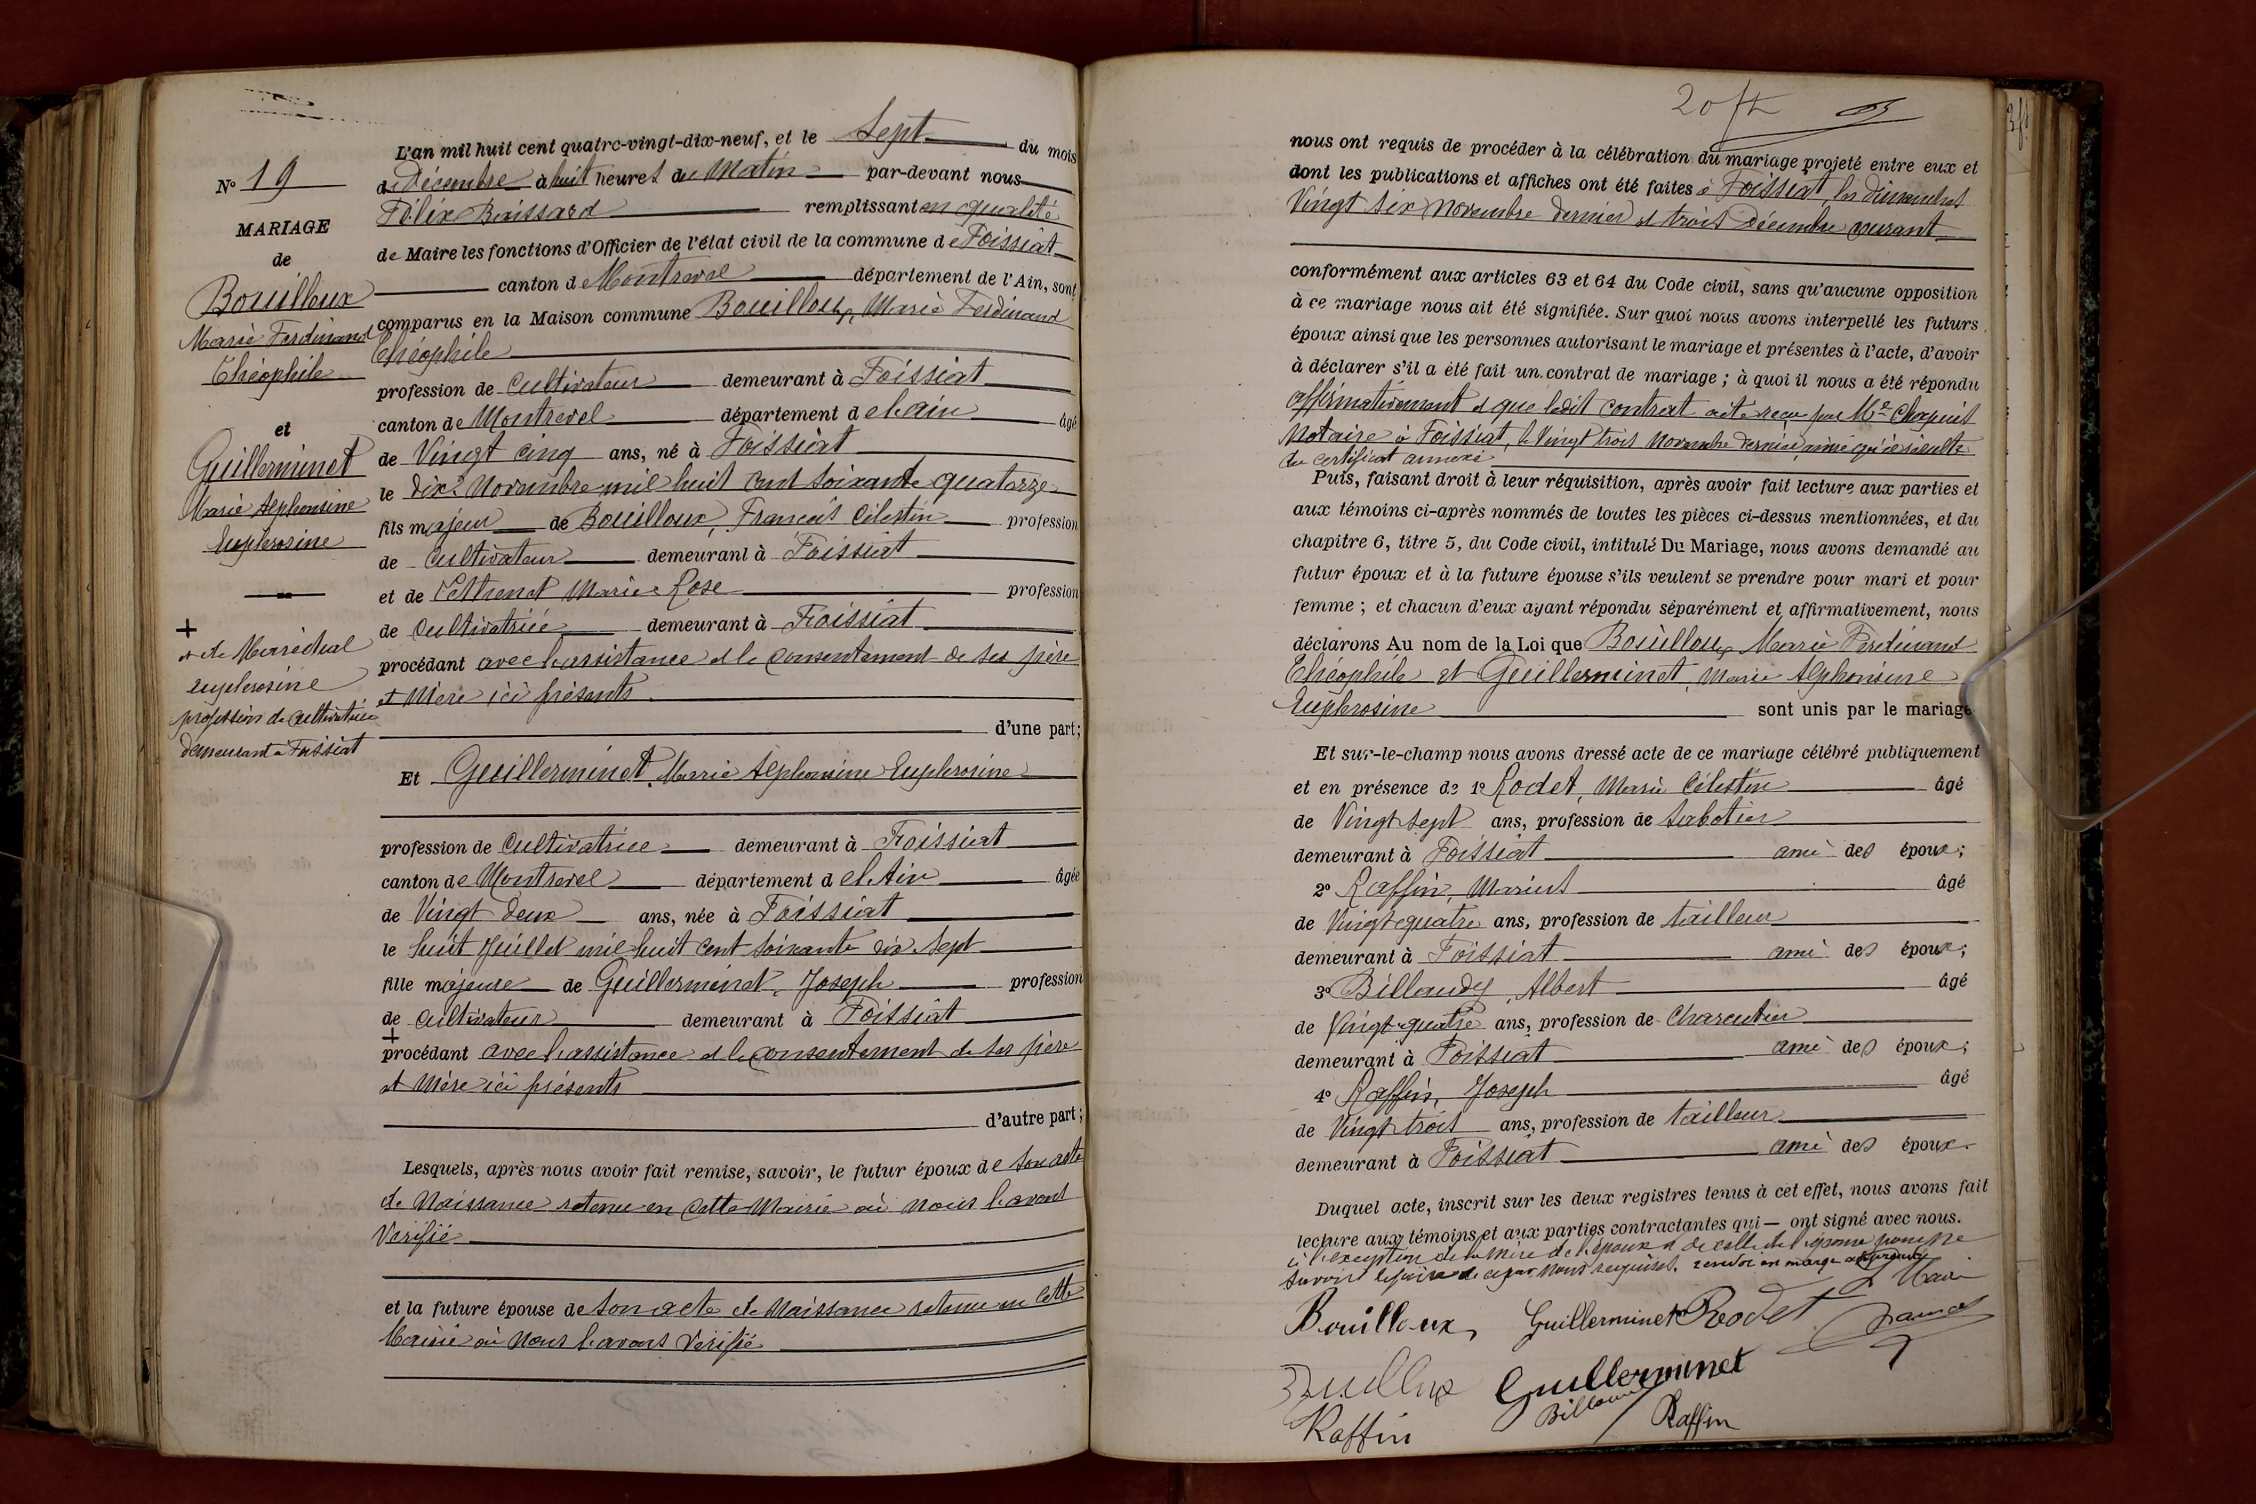 N° 19
MARIAGE
de
Bouilloux
Marie Ferdinand
Théophile
et
Guillerminet
Marie Alphonsine
Euphrosine
+
et de Maréchal
euphrosine
profession de cultivatrice
demeurant à Foissiat
L'an mil huit cent quatre-vingt-dix-neuf, et le Sept du mois
de Décembre à huit heures du Matin par-devant nous
Félix remplissant en qualité
de Maire les fonctions d'Officier de l'état civil de la commune de Foissiat
canton de Montrevel département de l'Ain, sont
comparus en la Maison commune Bouilloux, Marie Ferdinand
Théophile
profession de Cultivateur demeurant à Foissiat
canton de Montrevel département de l'ain âgé
de Vingt cinq ans, né à Foissiat
le dix Novembre mil huit cent soixante quatorze
fils majeur de Bouilloux, François Célestin profession
de Cultivateur demeurant à Foissiat
et de Marie Rose profession
de Cultivatrice demeurant à Foissiat
procédant avec l'assistance et le consentement de ses père
et Mère ici présents
d'une part;
Et Guillerminet, Marie Alphonsine Euphrosine
profession de Cultivatrice demeurant à Foissiat
canton de Montrevel département de l'Ain âgée
de Vingt deux ans, née à Foissiat
le huit Juillet mil huit cent soixante dix Sept
fille majeure de Guillerminet, Joseph profession
de cultivateur demeurant à Foissiat
+
procédant avec l'assistance et le consentement de ses père
et Mère ici présents
d'autre part;
Lesquels, après nous avoir fait remise, savoir, le futur époux de son acte
de Naissance retenu en cette Mairie où nous l'avons
Vérifié
et la future épouse de son acte de Naissance retenu en cette
Mairie où Nous l'avons Vérifié
nous ont requis de procéder à la célébration du mariage projeté entre eux et
dont les publications et affiches ont été faites à Foissiat, les dimanches
Vingt six Novembre dernier et trois Décembre courant
conformément aux articles 63 et 64 du Code civil, sans qu'aucune opposition
à ce mariage nous ait été signifiée. Sur quoi nous avons interpellé les futurs
époux ainsi que les personnes autorisant le mariage et présentes à l'acte, d'avoir
à déclarer s'il a été fait un contrat de mariage; à quoi il nous a été répondu
affirmativement et que ledit contrat a été reçu par Me Chapuis
Notaire à Foissiat, le Vingt trois Novembre dernier, ainsi qu'il résulte
du certificat annexé
Puis, faisant droit à leur réquisition, après avoir fait lecture aux parties et
aux témoins ci-après nommés de toutes les pièces ci-dessus mentionnées, et du
chapitre 6, titre 5, du Code civil, intitulé Du Mariage, nous avons demandé au
futur époux et à la future épouse s'ils veulent se prendre pour mari et pour
femme; et chacun d'eux ayant répondu séparément et affirmativement, nous
déclarons Au nom de la Loi que Bouilloux Marie Ferdinand
Théophile et Guillerminet, Marie Alphonsine
Euphrosine sont unis par le mariage
Et sur-le-champ nous avons dressé acte de ce mariage célébré publiquement
et en présence de 1° Rodet, Marie Célestin âgé
de Vingt sept ans, profession de sabotier
demeurant à Foissiat ami des époux;
2° Raffin, Marius âgé
de Vingt quatre ans, profession de tailleur
demeurant à Foissiat ami des époux;
3° Billoudy, Albert âgé
de Vingt quatre ans, profession de Charcutier
demeurant à Foissiat ami des époux;
4° Raffin, Joseph âgé
de Vingt trois ans, profession de tailleur
demeurant à Foissiat ami des époux.
Duquel acte, inscrit sur les deux registres tenus à cet effet, nous avons fait
lecture aux témoins et aux parties contractantes qui ont signé avec nous.
à l'exception de la Mère de l'époux et de celle de l'épouse pour ne
savoir le faire de ce par nous requises. renvoi en marge approuvé
Bouilloux, Guillerminet Rodet Le Maire
Guillerminet
Raffin Raffin